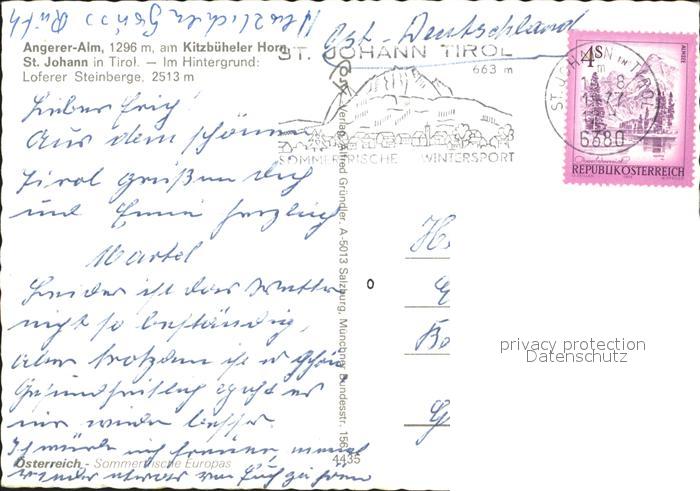 Herzlichen Gruß Ruth
Ost-Deutschland
Angerer-Alm, 1296 m, am Kitzbüheler Horn
St. Johann in Tirol. — Im Hintergrund:
Loferer Steinberge, 2513 m
ST. JOHANN TIROL
663 m
SOMMERFRISCHE WINTERSPORT
ST. JOHANN IN TIROL
6380
4S
ALMSEE
REPUBLIK ÖSTERREICH
Lieber Erich!
Aus dem schönen
Tirol grüßen Dich
und Emmi herzlich
Martel
Leider ist das Wetter
nicht so beständig,
aber trotzdem ist es schön.
Gesundheitlich geht es
mir wieder besser.
Ich würde mich freuen, einmal
wieder etwas von Euch zu hören
Verlag Alfred Gründler, A-5013 Salzburg, Münchner Bundesstr. 156
H
Bo
G
privacy protection
Datenschutz
Österreich - Sommerfrische Europas
4435